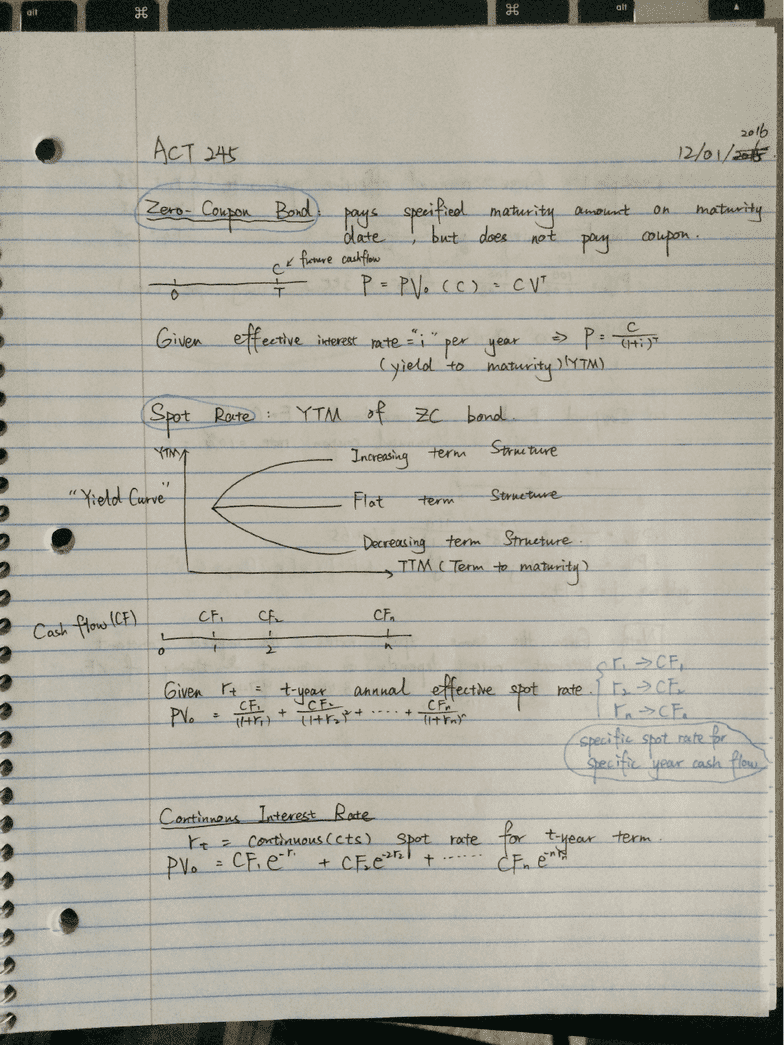 alt ⌘ ⌘ alt
ACT 245
2016
12/01/2015
Zero-Coupon Bond: pays specified maturity amount on maturity
date, but does not pay coupon.
C ↙ future cashflow
0 T
P = PV₀ (C) = CVᵀ
Given effective interest rate = "i" per year ⇒ P = C/(1+i)ᵀ
(yield to maturity) (YTM)
Spot Rate: YTM of ZC bond.
YTM
Increasing term Structure
"Yield Curve"
Flat term Structure
Decreasing term Structure.
TTM (Term to maturity)
Cash flow (CF)
CF₁ CF₂ CFₙ
0 1 2 n
Given rₜ = t-year annual effective spot rate.
PV₀ = CF₁/(1+r₁) + CF₂/(1+r₂)² + ····· + CFₙ/(1+rₙ)ⁿ
r₁ → CF₁
r₂ → CF₂
rₙ → CFₙ
specific spot rate for
specific year cash flow
Continuous Interest Rate
rₜ = continuous (cts) spot rate for t-year term.
PV₀ = CF₁e^-r₁ + CF₂e^-2r₂ + ······ CFₙ e^-nrₙ